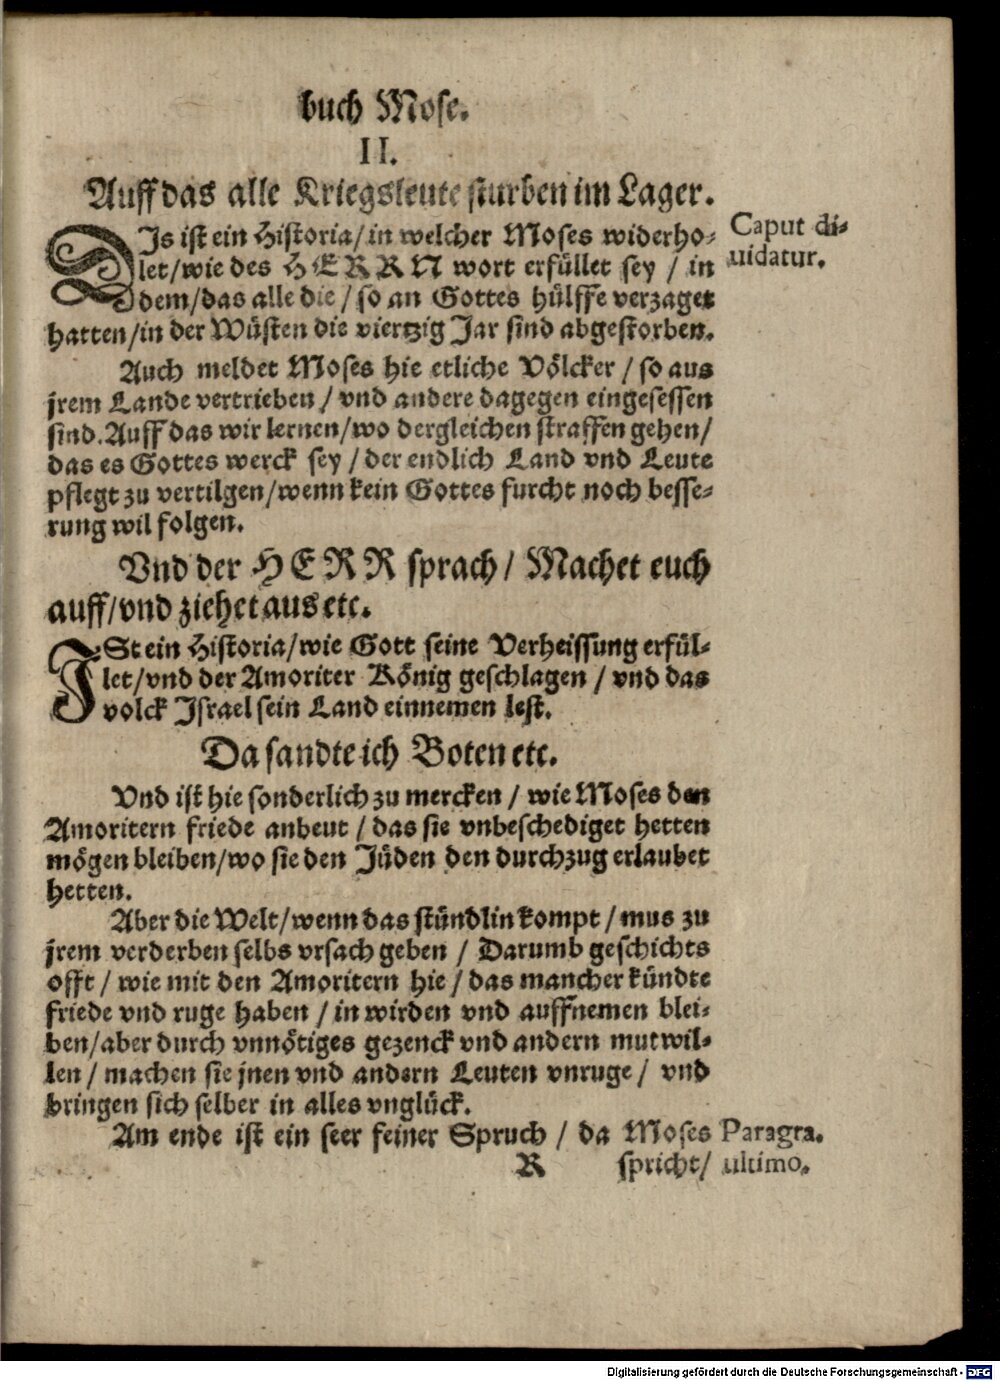 buch Mose.
II.
Auff das alle Kriegsleute sturben im Lager.
DIs ist ein Historia/in welcher Moses widerho-
let/wie des HERRN wort erfüllet sey / in
dem/das alle die / so an Gottes hülffe verzaget
hatten/in der Wüsten die viertzig Jar sind abgestorben.
Caput di-
uidatur.
Auch meldet Moses hie etliche Völcker / so aus
jrem Lande vertrieben / vnd andere dagegen eingesessen
sind. Auff das wir lernen/wo dergleichen straffen gehen/
das es Gottes werck sey / der endlich Land vnd Leute
pflegt zu vertilgen/wenn kein Gottes furcht noch besse-
rung wil folgen.
Vnd der HERR sprach / Machet euch
auff/vnd ziehet aus etc.
ISt ein Historia/wie Gott seine Verheissung erfül-
let/vnd der Amoriter König geschlagen / vnd das
volck Israel sein Land einnemen lest.
Da sandte ich Boten etc.
Vnd ist hie sonderlich zu mercken / wie Moses den
Amoritern friede anbeut / das sie vnbeschediget hetten
mögen bleiben/wo sie den Jüden den durchzug erlaubet
hetten.
Aber die Welt/wenn das stündlin kompt / mus zu
jrem verderben selbs vrsach geben / Darumb geschichts
offt / wie mit den Amoritern hie / das mancher kündte
friede vnd ruge haben / in wirden vnd auffnemen blei-
ben/aber durch vnnötiges gezenck vnd andern mutwil-
len / machen sie jnen vnd andern Leuten vnruge / vnd
bringen sich selber in alles vnglück.
Am ende ist ein seer feiner Spruch / da Moses
Paragra.
ultimo.
R spricht/
Digitalisierung gefördert durch die Deutsche Forschungsgemeinschaft - DFG